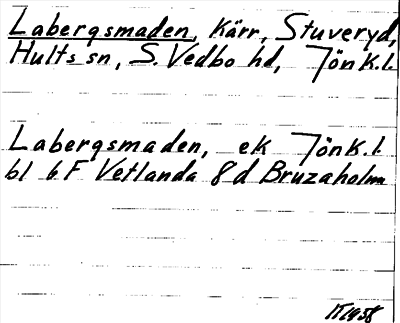 Labergsmaden, kärr, Stuveryd,
Hults sn, S. Vedbo hd, Jönk.l.
Labergsmaden, ek Jönk.l.
bl 6F Vetlanda 8d Bruzaholm
1958